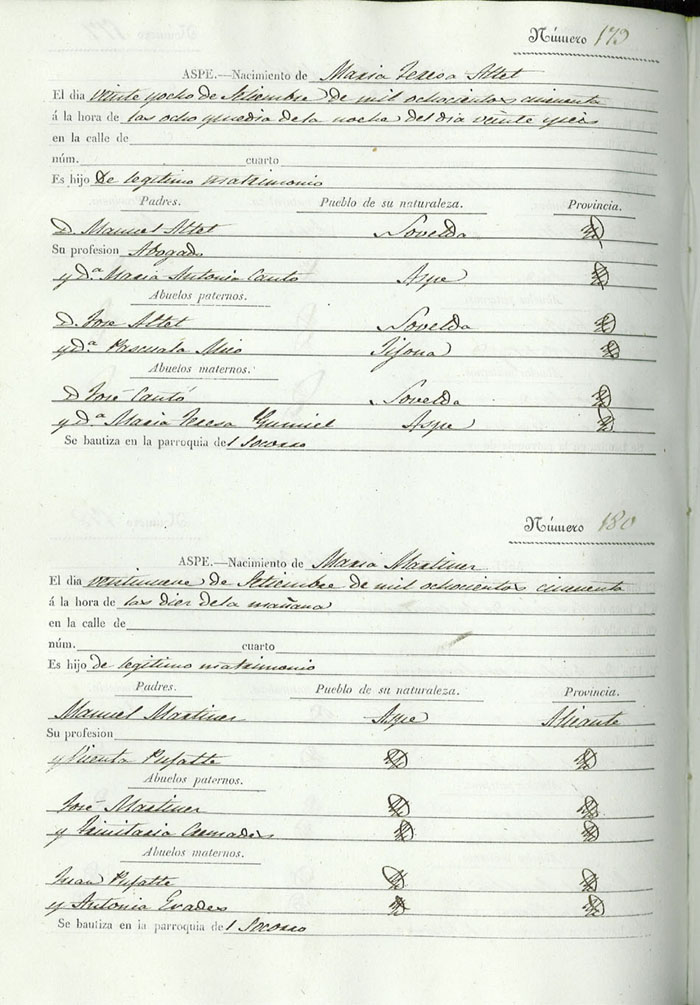 Número 179
ASPE.—Nacimiento de Maria Teresa Altet
El dia veinte y ocho de Setiembre de mil ochocientos cincuenta
á la hora de las ocho y media de la noche del dia veinte y seis
en la calle de
núm. cuarto
Es hijo De legitimo matrimonio
Padres. Pueblo de su naturaleza. Provincia.
D. Manuel Altet Novelda
Su profesion Abogado
y D.ª Maria Antonia Cantó Aspe
Abuelos paternos.
D. Jose Altet Novelda
y D.ª Pascuala Mico Jijona
Abuelos maternos.
D José Cantó Novelda
y D.ª Maria Teresa Gumiel Aspe
Se bautiza en la parroquia del Socorro
Número 180
ASPE.—Nacimiento de Maria Martinez
El dia veintinueve de Setiembre de mil ochocientos cincuenta
á la hora de las diez de la mañana
en la calle de
núm. cuarto
Es hijo de legitimo matrimonio
Padres. Pueblo de su naturaleza. Provincia.
Manuel Martinez Aspe Alicante
Su profesion
y Vicenta
Abuelos paternos.
José Martinez
y Trinitaria
Abuelos maternos.
Juan
y Antonia
Se bautiza en la parroquia del Socorro